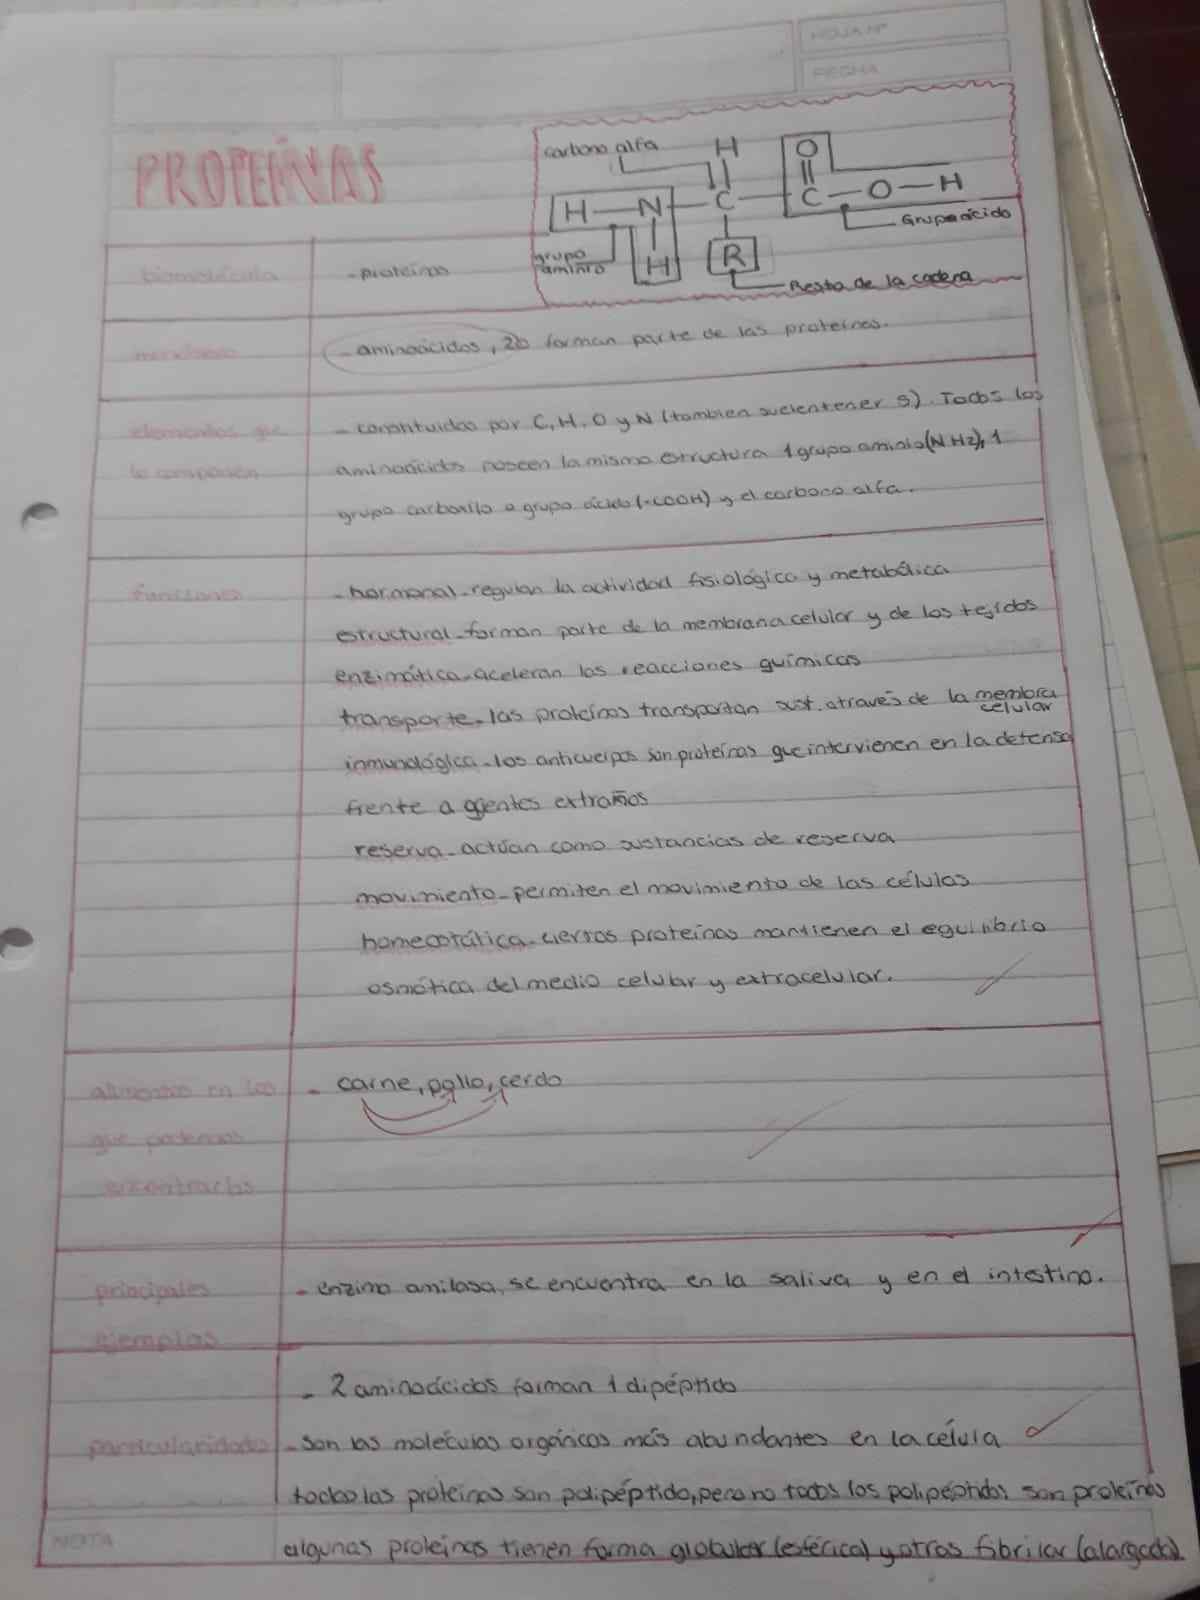 HOJA Nº
FECHA
PROTEÍNAS
carbono alfa
H
O
H—N—C—C—O—H
grupo ácido
grupo aminio
H
R
Resto de la cadena
biomolécula
-proteínas
monómero
-aminoácidos, 20 forman parte de las proteínas.
elementos que lo componen
- constituidos por C, H, O y N (tambien suelen tener S). Todos los
aminoácidos poseen la misma estructura 1 grupo aminio (NH2), 1
grupo carboxilo o grupo ácido (-COOH) y el carbono alfa.
funciones
-hormonal-regulan la actividad fisiológica y metabólica
estructural-forman parte de la membrana celular y de los tejidos
enzimática-aceleran las reacciones químicas
transporte-las proteínas transportan sust. através de la membra celular
inmunológica-los anticuerpos son proteínas que intervienen en la defensa
frente a agentes extraños
reserva-actúan como sustancias de reserva
movimiento-permiten el movimiento de las células
homeostática-ciertas proteínas mantienen el equilibrio
osmótica del medio celular y extracelular.
alimentos en los
- carne, pollo, cerdo
que podemos
encontrarlos
principales
- enzima amilasa, se encuentra en la saliva y en el intestino.
ejemplos
- 2 aminoácidos forman 1 dipéptido
particularidades
-son las moléculas orgánicas más abundantes en la célula
todas las proteínas son polipéptido, pero no todos los polipéptidos son proteínas
NOTA
algunas proteínas tienen forma globular (esférica) y otras fibrilar (alargada).